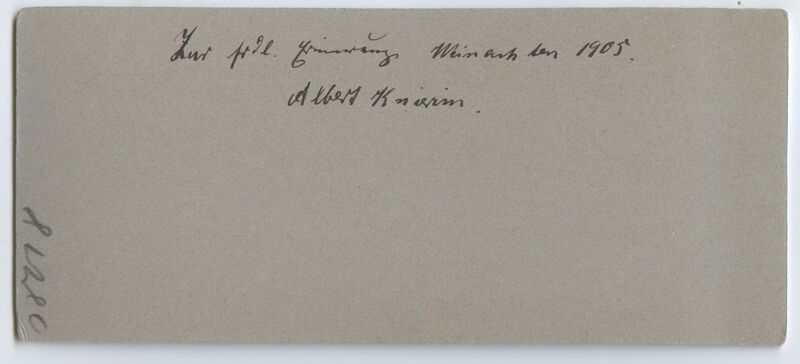 Zur frdl. Erinnerung. Weinachten 1905.
Albert Knierim.
81280